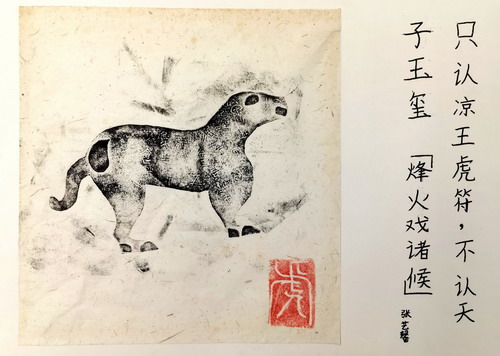 只认凉王虎符，不认天
子玉玺「烽火戏诸候」
张艺馨
虎